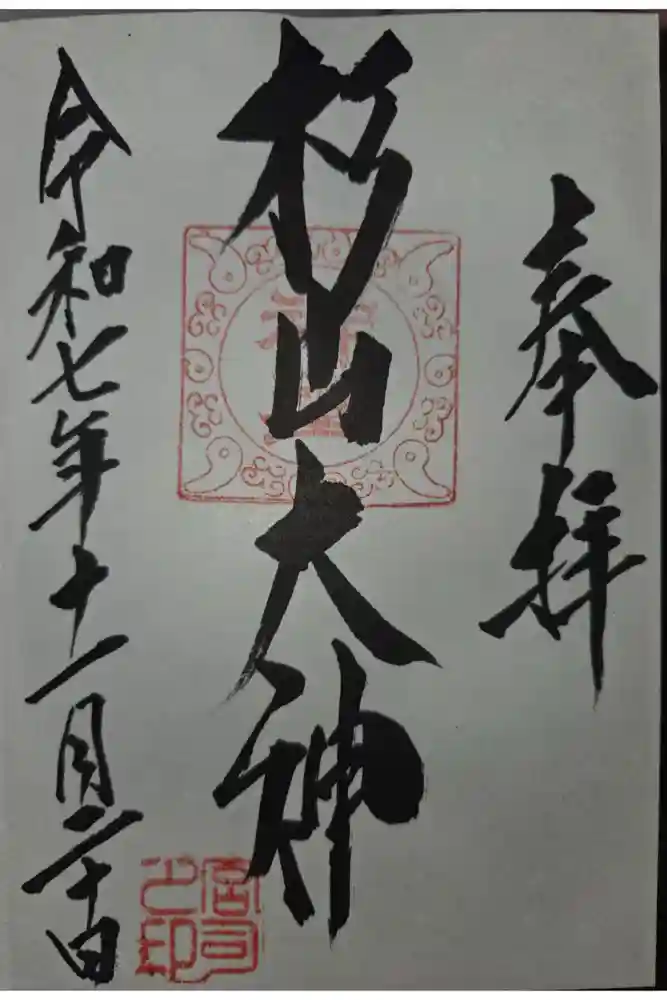 奉拝
杉山大神
令和七年十一月二十日
宮司
之印